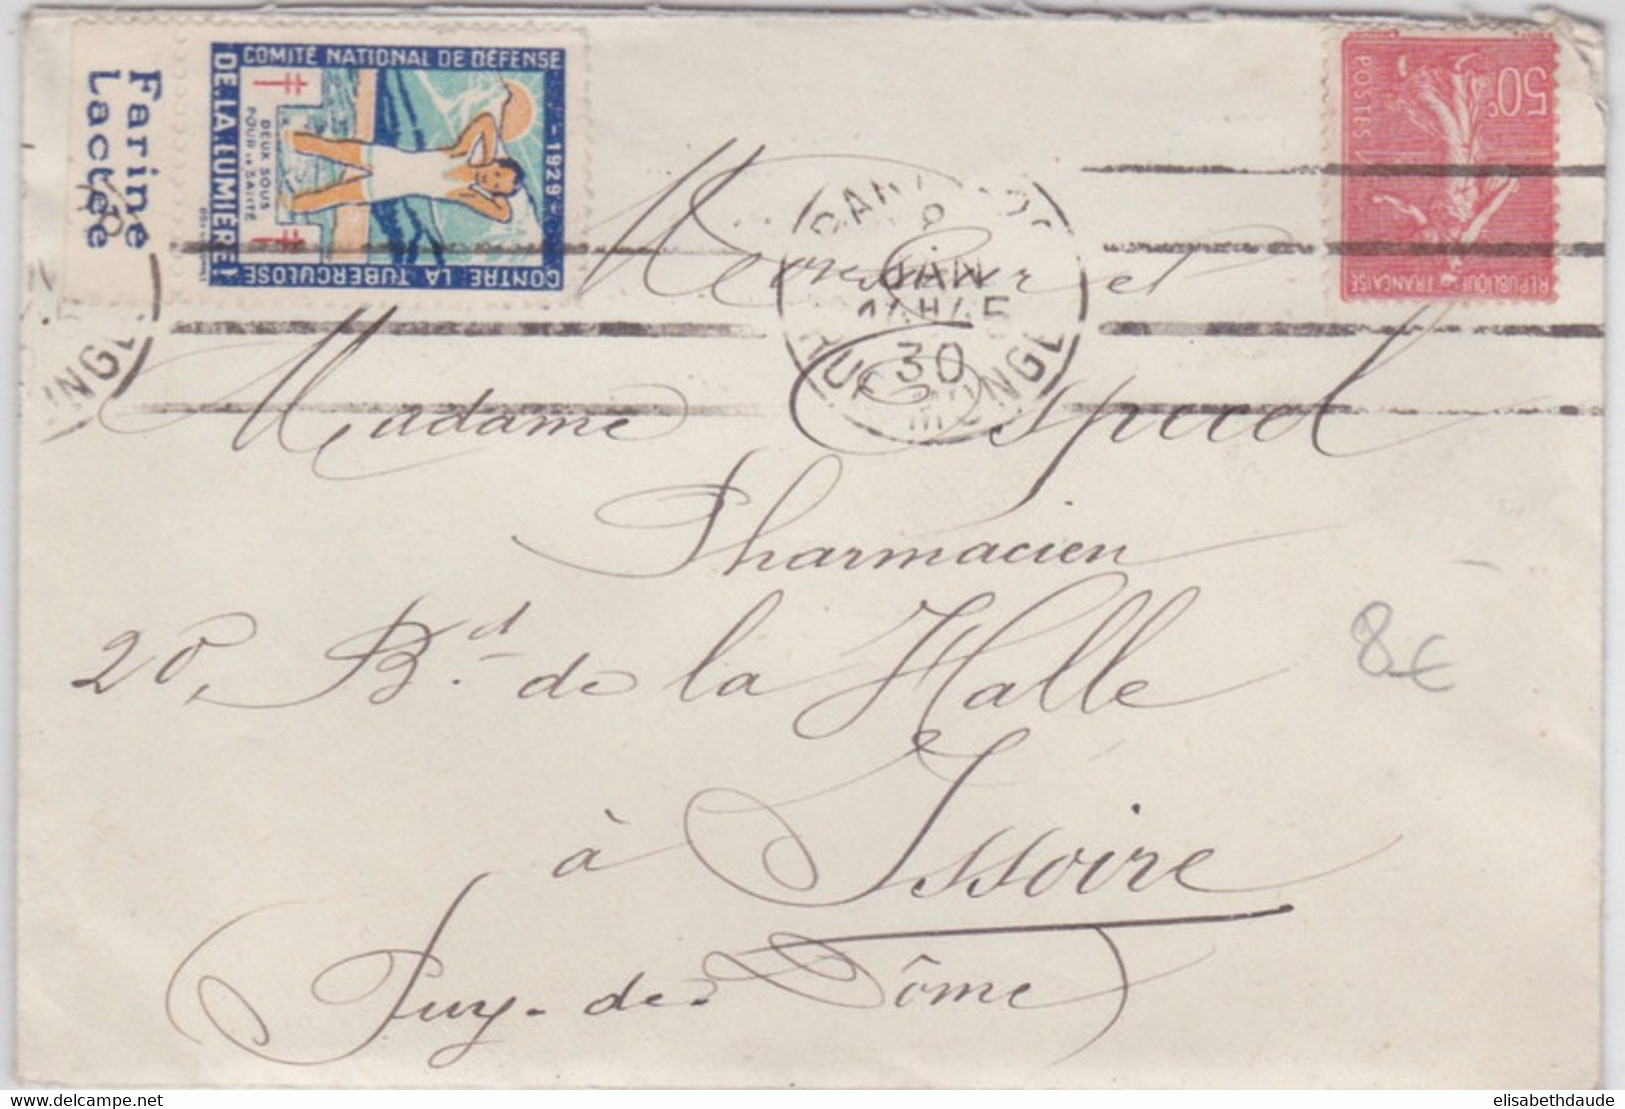 Farine
Lactée
COMITÉ NATIONAL DE DÉFENSE
CONTRE LA TUBERCULOSE
DE LA LUMIÈRE!
1929
DEUX SOUS
POUR LA SANTÉ
50c
POSTES
REPUBLIQUE FRANÇAISE
8
JAN
30
RUE MONGE
Monsieur et
Madame
Pharmacien
20, Bd. de la Halle
à Issoire
Puy-de-Dôme
8€
elisabethdaude